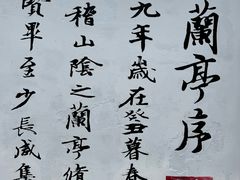 蘭亭序
九年歲在癸丑暮春
稽山陰之蘭亭脩
賢畢至少長咸集